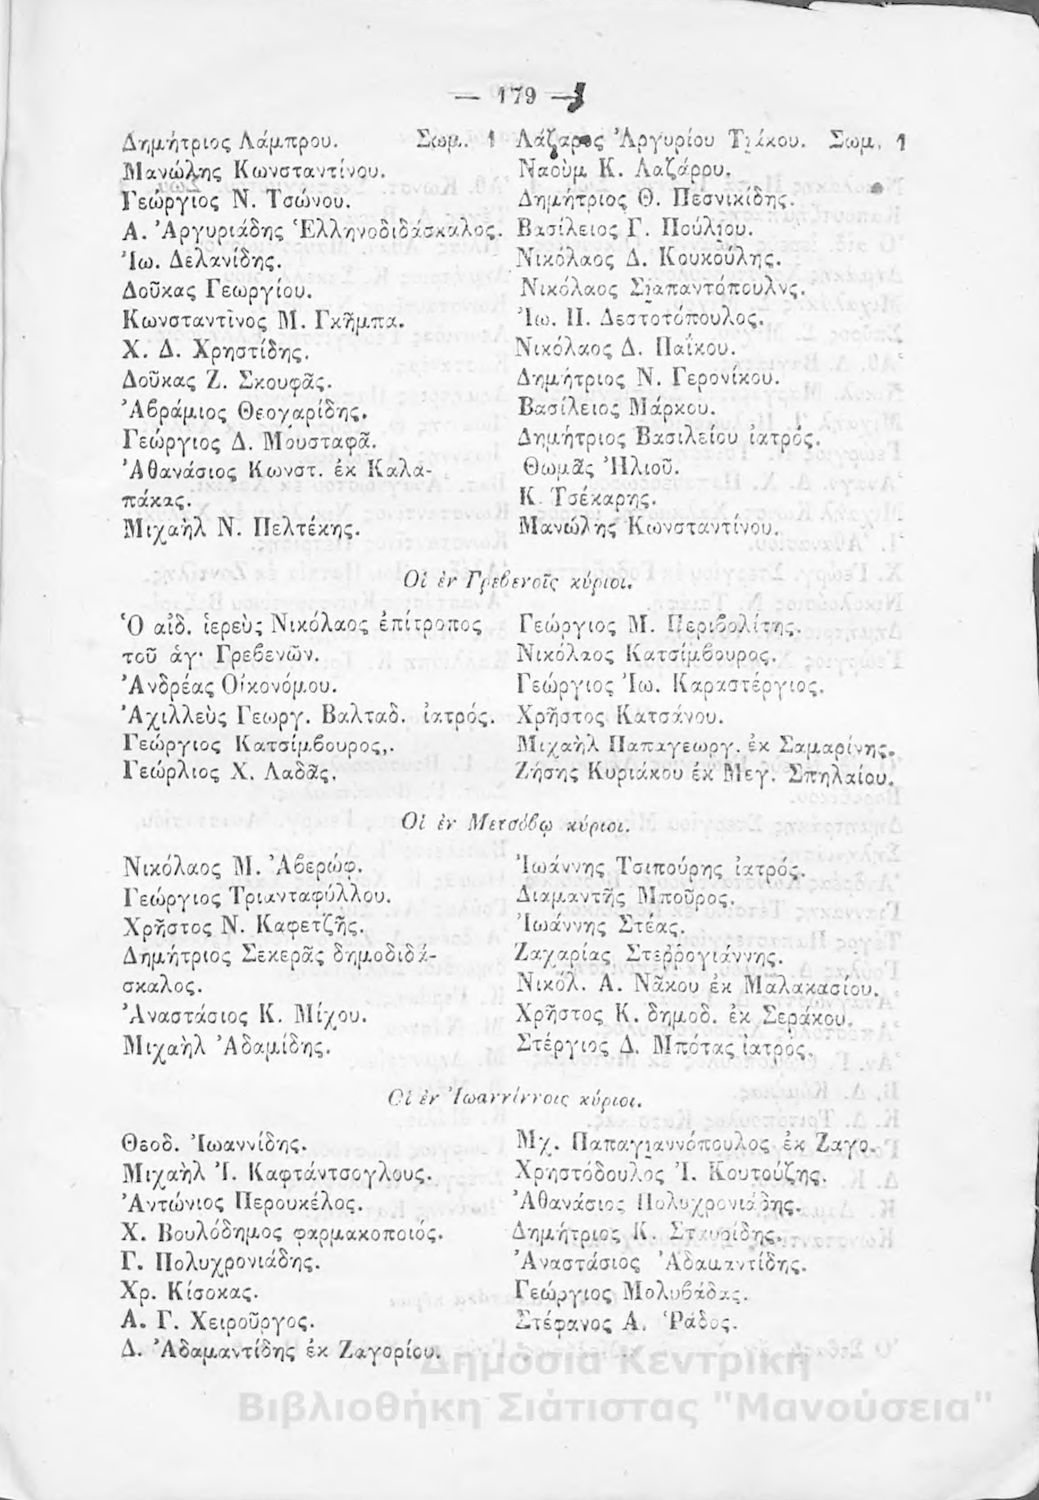 — 179 —
Δημήτριος Λάμπρου. Σωμ. 1
Μανώλης Κωνσταντίνου.
Γεώργιος Ν. Τσώνου.
Α. Ἀργυριάδης Ἑλληνοδιδάσκαλος.
Ἰω. Δελανίδης.
Δοῦκας Γεωργίου.
Κωνσταντῖνος Μ. Γκῆμπα.
Χ. Δ. Χρηστίδης.
Δοῦκας Ζ. Σκουφᾶς.
Ἀβράμιος Θεογαρίδης.
Γεώργιος Δ. Μουσταφᾶ.
Ἀθανάσιος Κωνστ. ἐκ Καλα-
πάκας.
Μιχαὴλ Ν. Πελτέκης.
Λάζαρος Ἀργυρίου Τιάκου. Σωμ. 1
Ναοὺμ Κ. Λαζάρου.
Δημήτριος Θ. Πεσνικίδης.
Βασίλειος Γ. Πούλιου.
Νικόλαος Δ. Κουκούλης.
Νικόλαος Σιαπαντόπουλνς.
Ἰω. Π. Δεστοτόπουλος.
Νικόλαος Δ. Παΐκου.
Δημήτριος Ν. Γερονίκου.
Βασίλειος Μάρκου.
Δημήτριος Βασιλείου ἰατρός.
Θωμᾶς Ἠλιοῦ.
Κ. Τσέκαρης.
Μανώλης Κωνσταντίνου.
Οἱ ἐν Γρεβενοῖς κύριοι.
Ὁ αἰδ. ἱερεὺς Νικόλαος ἐπίτροπος
τοῦ ἁγ· Γρεβενῶν.
Ἀνδρέας Οἰκονόμου.
Ἀχιλλεὺς Γεωργ. Βαλταδ. ἰατρός.
Γεώργιος Κατσίμβουρος,.
Γεώρλιος Χ. Λαδᾶς.
Γεώργιος Μ. Περιβολίτης.
Νικόλαος Κατσίμβουρος.
Γεώργιος Ἰω. Καραστέργιος.
Χρῆστος Κατσάνου.
Μιχαὴλ Παπαγεωργ. ἐκ Σαμαρίνης.
Ζήσης Κυριάκου ἐκ Μεγ. Σπηλαίου.
Οἱ ἐν Μετσόβῳ κύριοι.
Νικόλαος Μ. Ἀβερώφ.
Γεώργιος Τριανταφύλλου.
Χρῆστος Ν. Καφετζῆς.
Δημήτριος Σεκερᾶς δημοδιδά-
σκαλος.
Ἀναστάσιος Κ. Μίχου.
Μιχαὴλ Ἀδαμίδης.
Ἰωάννης Τσιπούρης ἰατρός.
Διαμαντῆς Μποῦρος.
Ἰωάννης Στέας.
Ζαχαρίας Στεῤῥογιάννης.
Νικόλ. Α. Νάκου ἐκ Μαλακασίου.
Χρῆστος Κ. δημοδ. ἐκ Σεράκου.
Στέργιος Δ. Μπότας ἰατρός.
Οἱ ἐν Ἰωαννίνοις κύριοι.
Θεοδ. Ἰωαννίδης.
Μιχαὴλ Ἰ. Καφτάντσογλους.
Ἀντώνιος Περουκέλος.
Χ. Βουλόδημος φαρμακοποιός.
Γ. Πολυχρονιάδης.
Χρ. Κίσοκας.
Α. Γ. Χειροῦργος.
Δ. Ἀδαμαντίδης ἐκ Ζαγορίου.
Μχ. Παπαγιαννόπουλος ἐκ Ζαγο.
Χρηστόδουλος Ἰ. Κουτούζης.
Ἀθανάσιος Πολυχρονιάδης.
Δημήτριος Κ. Σταυρίδης.
Ἀναστάσιος Ἀδαμαντίδης.
Γεώργιος Μολυβάδας.
Στέφανος Α. Ῥάδος.
Δημόσια Κεντρική
Βιβλιοθήκη Σιάτιστας "Μανούσεια"